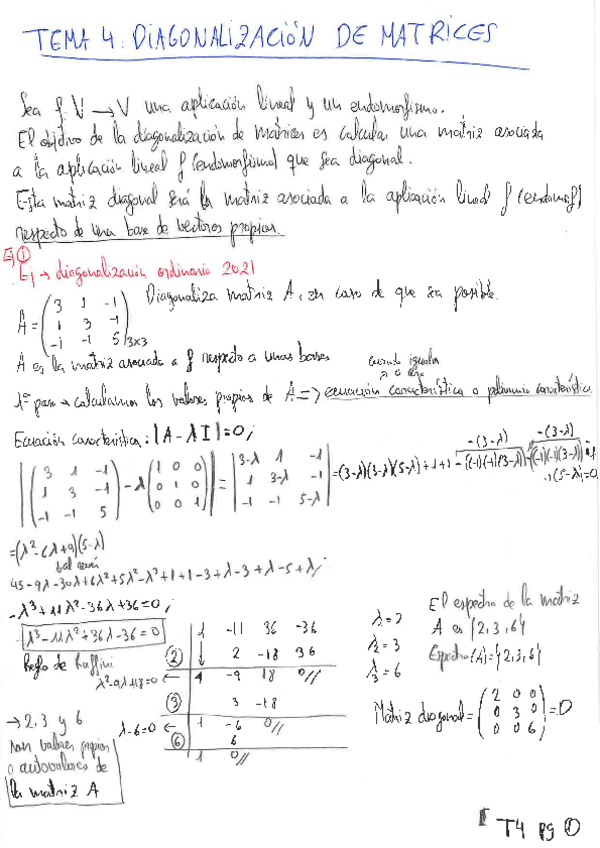 TEMA 4: DIAGONALIZACIÓN DE MATRICES
Sea f: V → V una aplicación lineal y un endomorfismo.
El objetivo de la diagonalización de matrices es calcular una matriz asociada
a la aplicación lineal f (endomorfismo) que sea diagonal.
Esta matriz diagonal será la matriz asociada a la aplicación lineal f (endomorf)
respecto de una base de vectores propios.
Ej ①
Ej → diagonalización ordinario 2021
Diagonaliza matriz A, en caso de que sea posible.
A = (3 1 -1
1 3 -1
-1 -1 5) 3x3
A es la matriz asociada a f respecto a unas bases
cuando igualas
1º paso → calculamos los valores propios de A => ecuación característica o polinomio característico
Ecuación característica: |A - λI| = 0;
|(3 1 -1
1 3 -1
-1 -1 5) - λ (1 0 0
0 1 0
0 0 1)| = |3-λ 1 -1
1 3-λ -1
-1 -1 5-λ| = (3-λ)(3-λ)(5-λ)+1+1
-(3-λ) -(3-λ)
-(-1)(-1)(3-λ) -(-1)(-1)(3-λ)
(5-λ)=0
=(λ²-6λ+9)(5-λ)
45-9λ-30λ+6λ²+5λ²-λ³+1+1-3+λ-3+λ-5+λ;
-λ³+11λ²-36λ+36=0;
λ³-11λ²+36λ-36=0
Regla de Ruffini
1 -11 36 -36
② ↓ 2 -18 36
λ²-9λ+18=0 ← 1 -9 18 0//
③ 3 -18
λ-6=0 ← 1 -6 0//
⑥ 6
1 0//
→ 2, 3 y 6
son valores propios
o autovalores de
la matriz A
λ₁=2
λ₂=3
λ₃=6
El espectro de la matriz
A es {2,3,6}
Espectro(A)={2,3,6}
Matriz diagonal = (2 0 0
0 3 0
0 0 6) = D
T4 pg ①